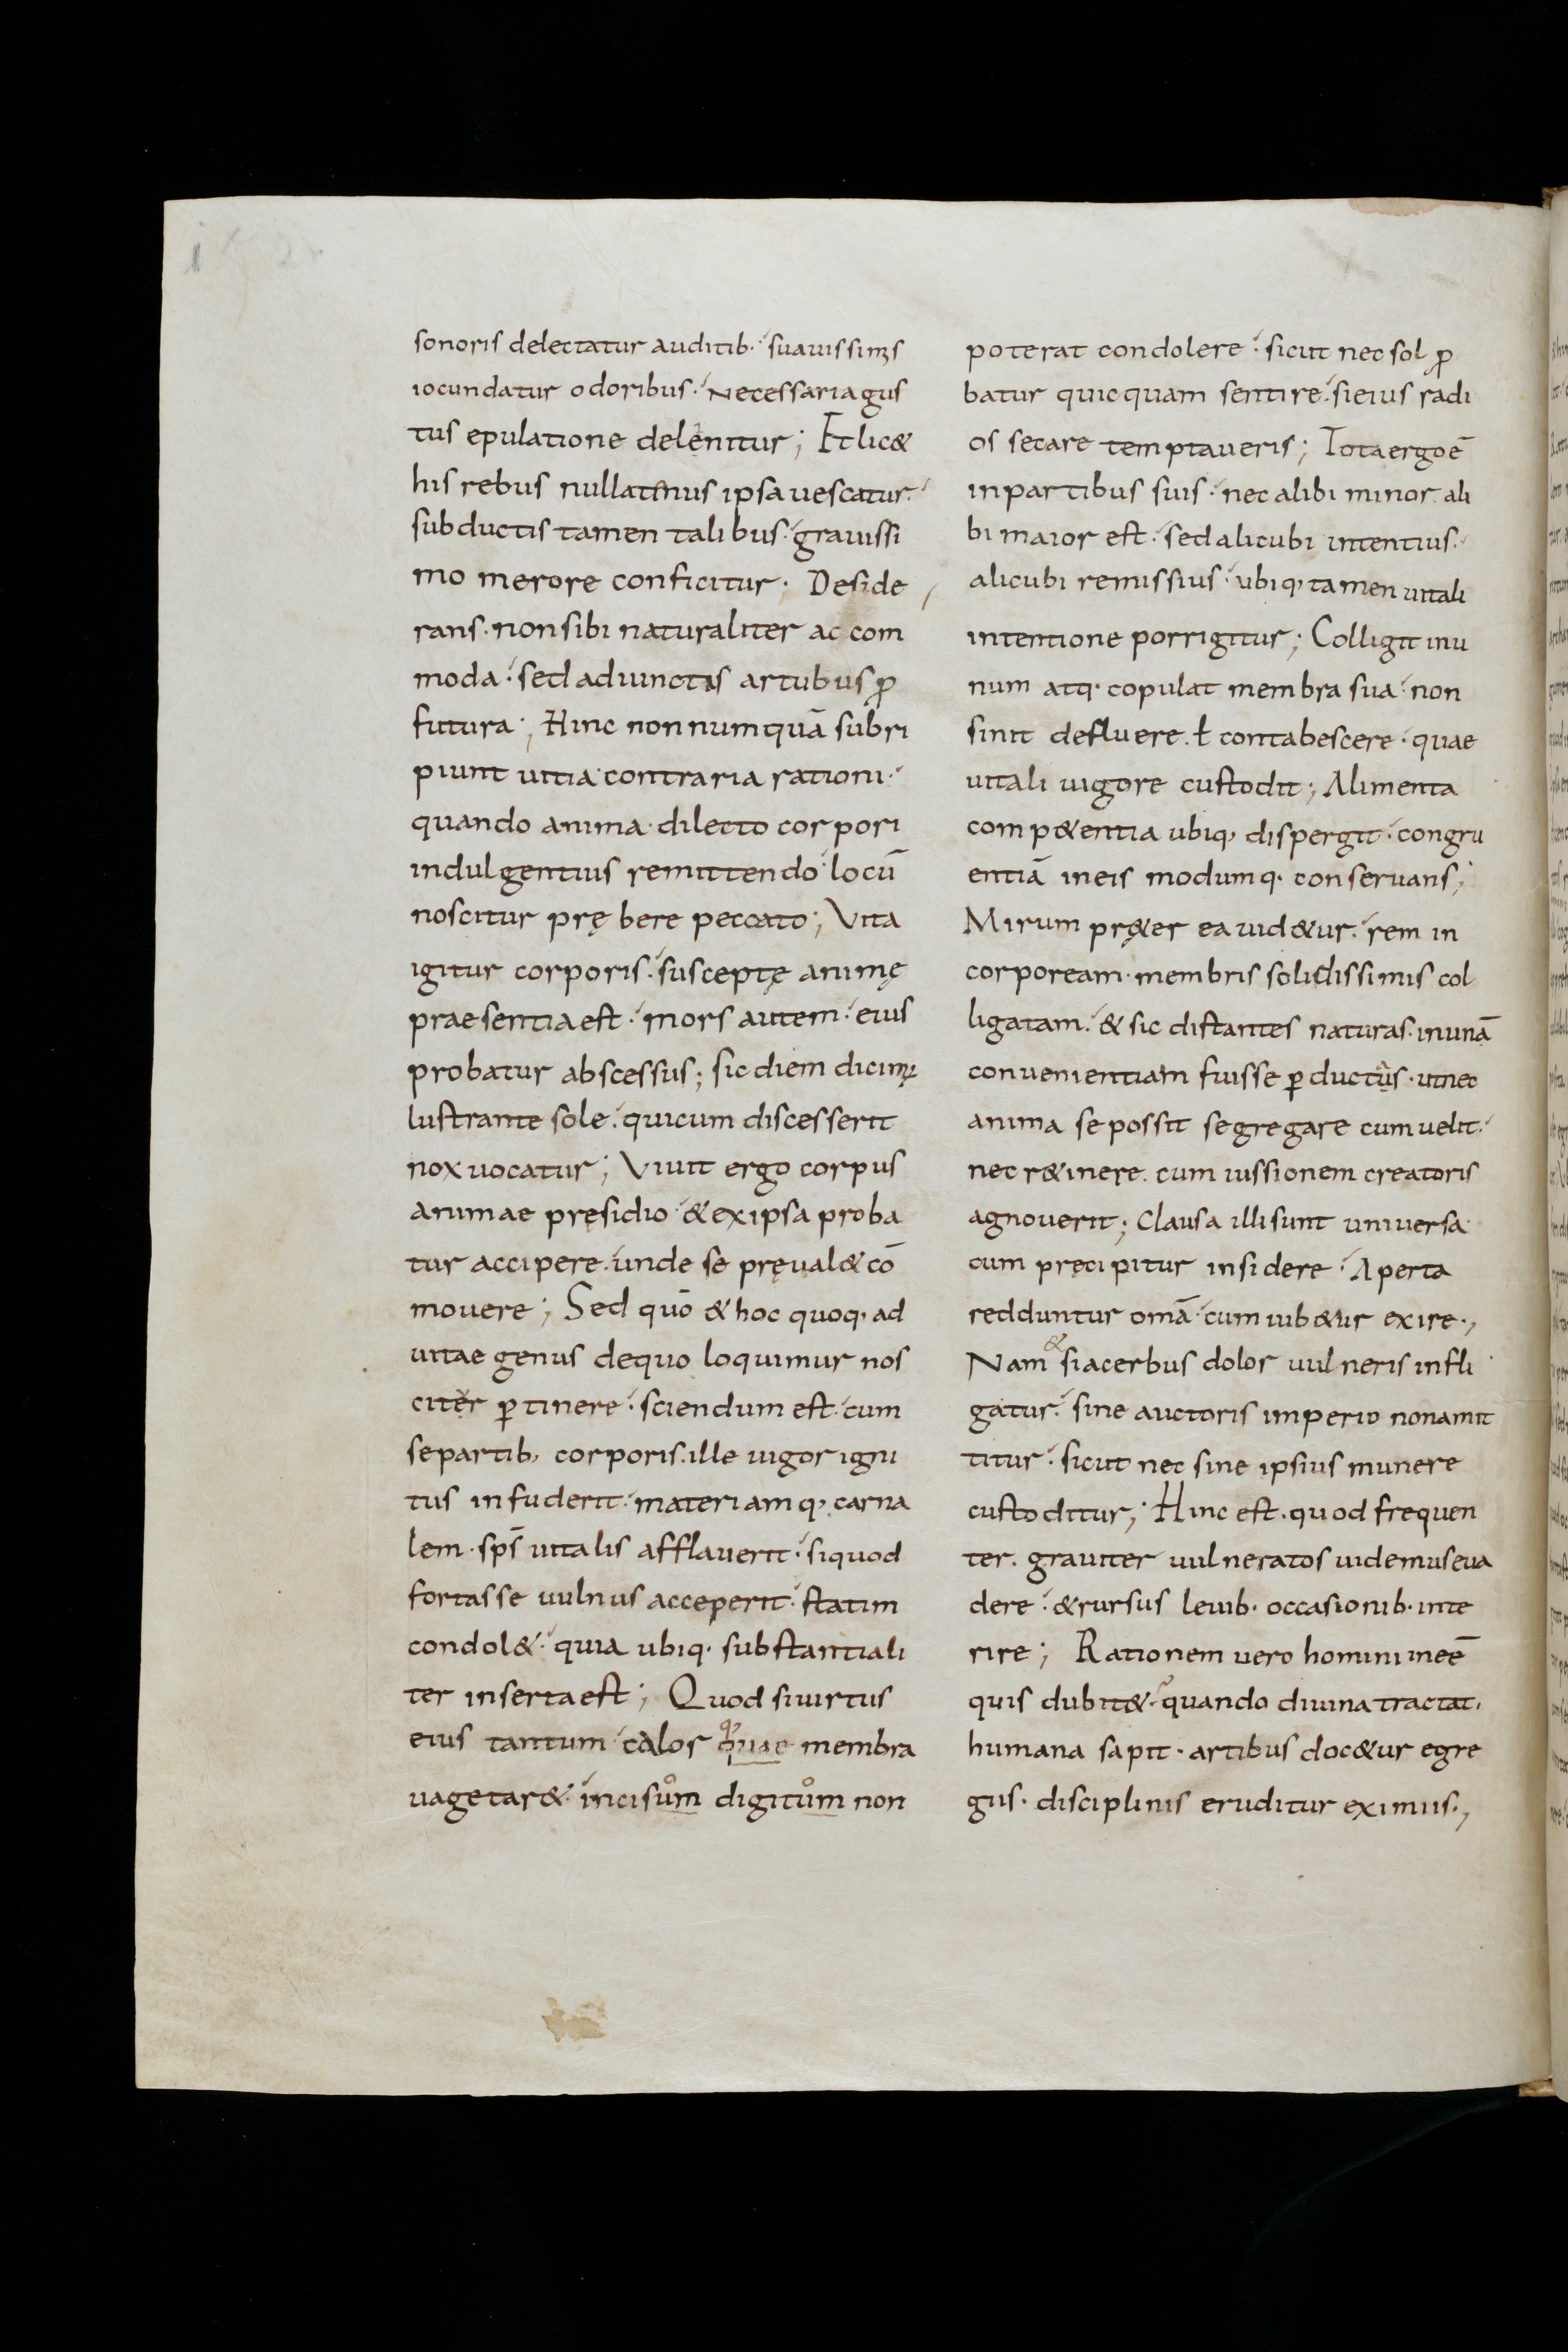 sonoris delectatur auditib· suauissimis
iocundatur odoribus· Necessaria gus
tus epulatione delenitur; Et lic&
his rebus nullatinus ipsa uescatur·
subductis tamen talibus· grauissi
mo merore conficitur· Deside
rans· non sibi naturaliter ac com
moda· sed adiunctis artubus ꝓ
futura; Hinc non numquā subri
piunt uitia contraria rationi·
quando anima· dilecto corpori
indulgentius remittendo· locū
noscitur prębere peccato; Vita
igitur corporis· susceptę animę
praesentia est· mors autem· eius
probatur abscessus; sic diem dicimus
lustrante sole· qui cum discesserit
nox uocatur; Viuit ergo corpus
animae pręsidio· & ex ipsa proba
tur accipere· unde se pręual& cō
mouere; Sed quō & hoc quoq· ad
uitae genus de quo loquimur nos
citer ꝑtinere· sciendum est· cum
se partib· corporis· ille uigor igni
tus infuderit· materiamq· carna
lem· sp̄s uitalis afflauerit· si quod
fortasse uulnus acceperit· statim
condol&· quia ubiq· substantiali
ter inserta est; Quod si uirtus
eius tantum· calos quae membra
uagetar&· incisum digitum non
poterat condolere· sicut nec sol ꝓ
batur quicquam sentire· si eius radi
os secare temptaueris; Tota ergo ē
in partibus suis· nec alibi minor ali
bi maior est· sed alicubi intentius·
alicubi remissius· ubiq· tamen uitali
intentione porrigitur; Colligit in u
num atq· copulat membra sua· non
sinit defluere· ł contabescere· quae
uitali uigore custodit; Alimenta
comp&entia ubiq· dispergit· congru
entiā in eis modumq· conseruans;
Mirum pręter ea uid&ur· rem in
corpoream· membris solidissimis col
ligatam· & sic distantes naturas· in unā
conuenientiam fuisse ꝑductus· ut nec
anima se possit segregare cum uelit·
nec r&inere· cum iussionem creatoris
agnouerit; Clausa illi sunt uniuersa
cum pręcipitur insidere· Aperta
redduntur omā· cum iub&ur exire·,
Nam & si acerbus dolor uulneris infli
gatur· sine auctoris imperio non amit
titur· sicut nec sine ipsius munere
custoditur; Hinc est· quod frequen
ter· grauiter uulneratos uidemus eua
dere· & rursus leuib· occasionib· inte
rire; Rationem uero homini ineē
quis dubit&· quando diuina tractat·
humana sapit· artibus doc&ur egre
giis· disciplinis eruditur eximiis·,